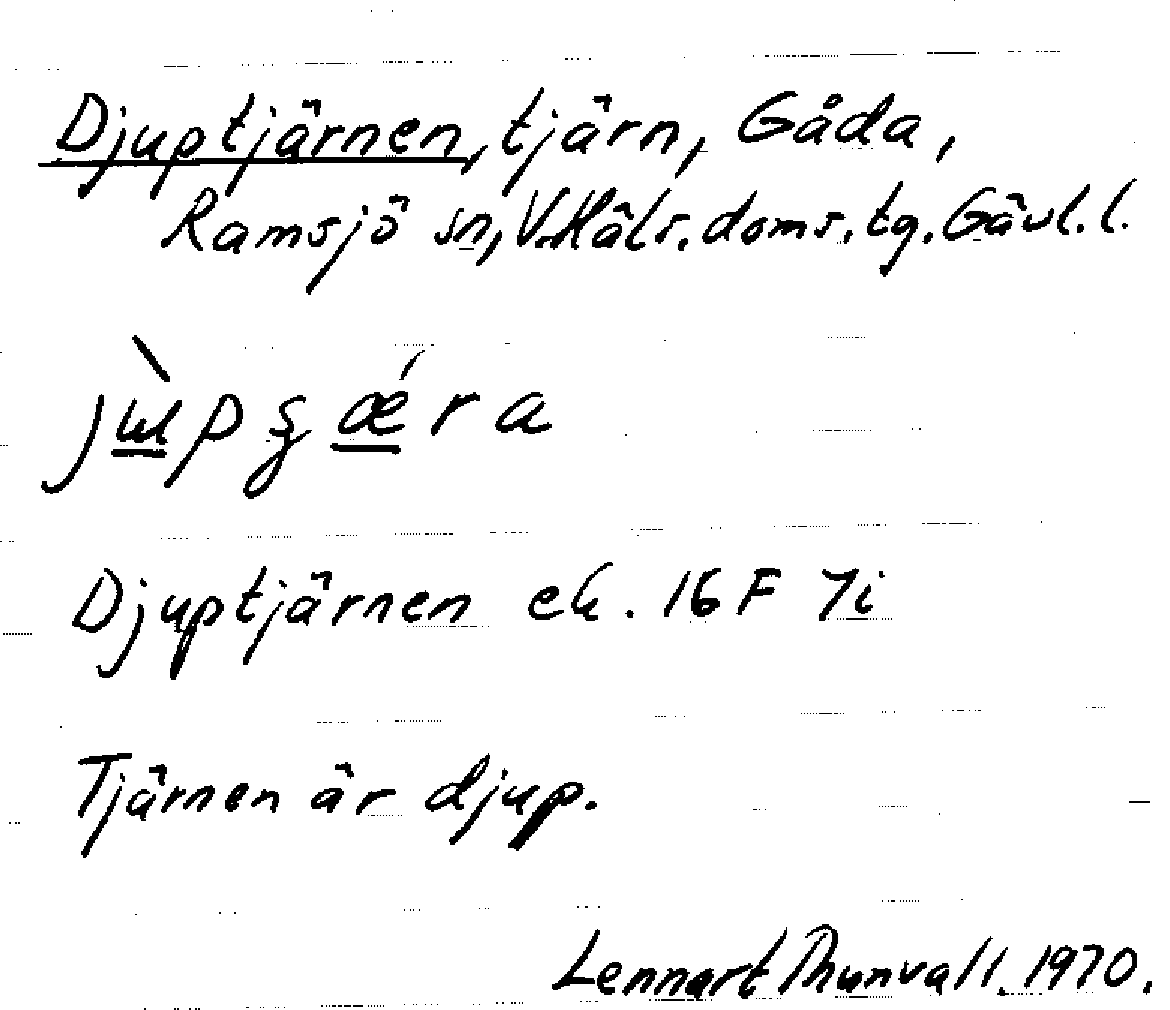 Djuptjärnen, tjärn, Gåda,
Ramsjö sn, V.Häls. doms. tg. Gävl. l.
Djuptjärnen ek. 16 F 7i
Tjärnen är djup.
Lennart Thunvall. 1970.